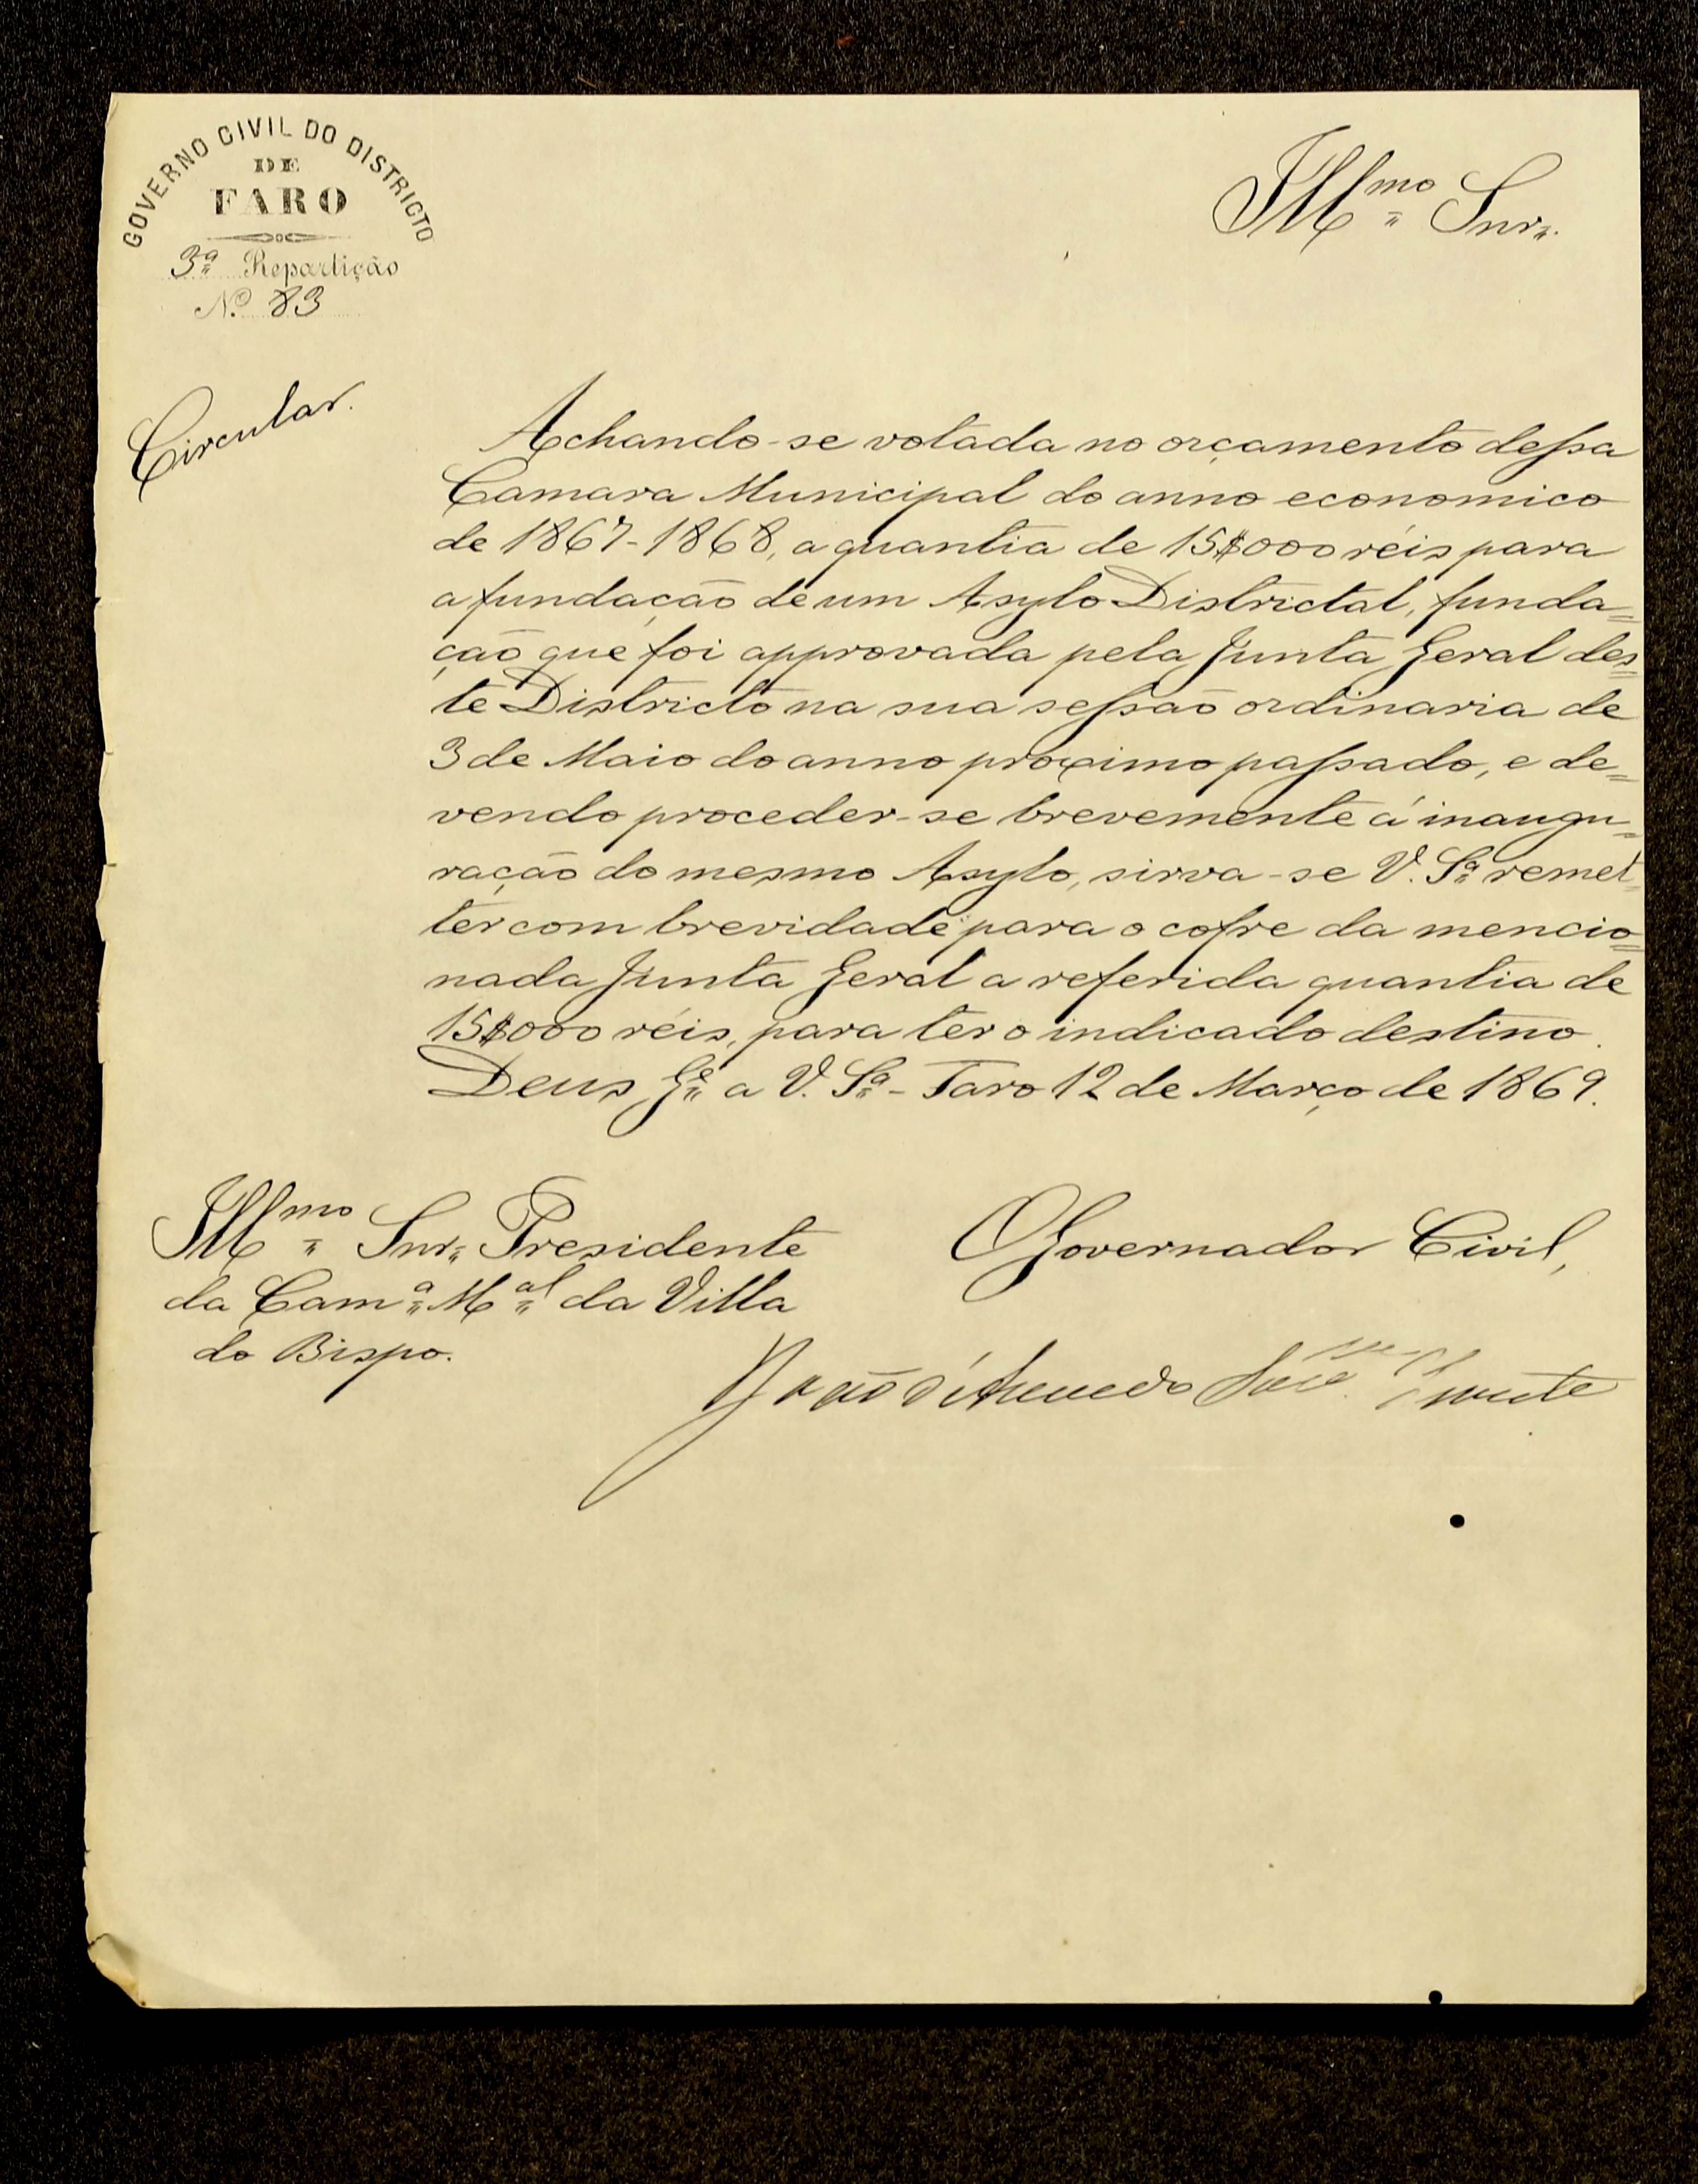 GOVERNO CIVIL DO DISTRICTO
DE
FARO
3ª Repartição
Nº 83
Illmo Snr.
Circular.
Achando-se votada no orçamento dessa
Camara Municipal do anno economico
de 1867-1868, a quantia de 15$000 réis para
a fundação de um Asylo Districtal, funda=
ção que foi approvada pela Junta Geral des=
te Districto na sua sessão ordinaria de
3 de Maio do anno proximo passado, e de=
vendo proceder-se brevemente á inaugu=
ração do mesmo Asylo, sirva-se V. Sª remet=
ter com brevidade para o cofre da mencio=
nada Junta Geral a referida quantia de
15$000 réis, para ter o indicado destino.
Deus Ge a V. Sª - Faro 12 de Março de 1869.
Illmo Snr. Presidente
da Camª Mal da Villa
do Bispo.
O Governador Civil,